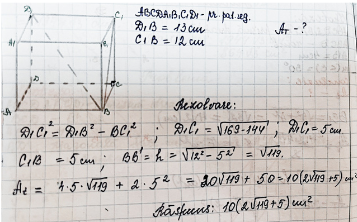 D₁ C₁
A₁ B₁
D C
A B
ABCDA₁B₁C₁D₁ - pr. pat. reg.
D₁B = 13 cm
C₁B = 12 cm
At - ?
Rezolvare:
D₁C₁² = D₁B² - BC₁² ; D₁C₁ = √169-144 ; D₁C₁ = 5 cm.
C₁B = 5 cm ; BB' = h = √12² - 5² = √119.
At = 4·5·√119 + 2·5² = 20√119 + 50 = 10(2√119+5) cm²
Răspuns: 10(2√119+5) cm²